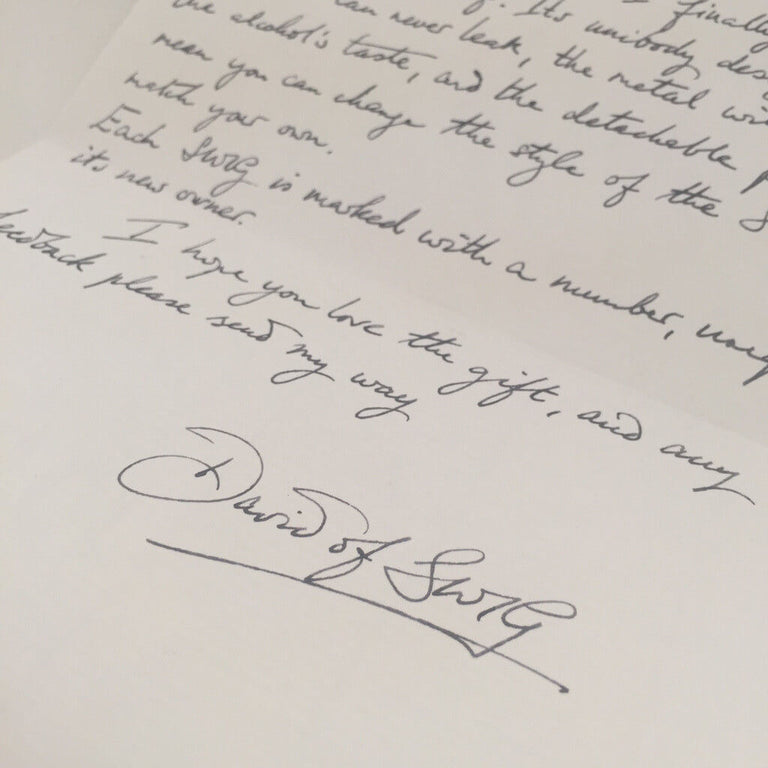 finally
. Its unibody des
can never leak, the metal wi
the alcohol's taste, and the detachable p
mean you can change the style of the S
match your own.
Each SWIG is marked with a number, uniq
its new owner.
I hope you love the gift, and any
feedback please send my way
David of SWIG